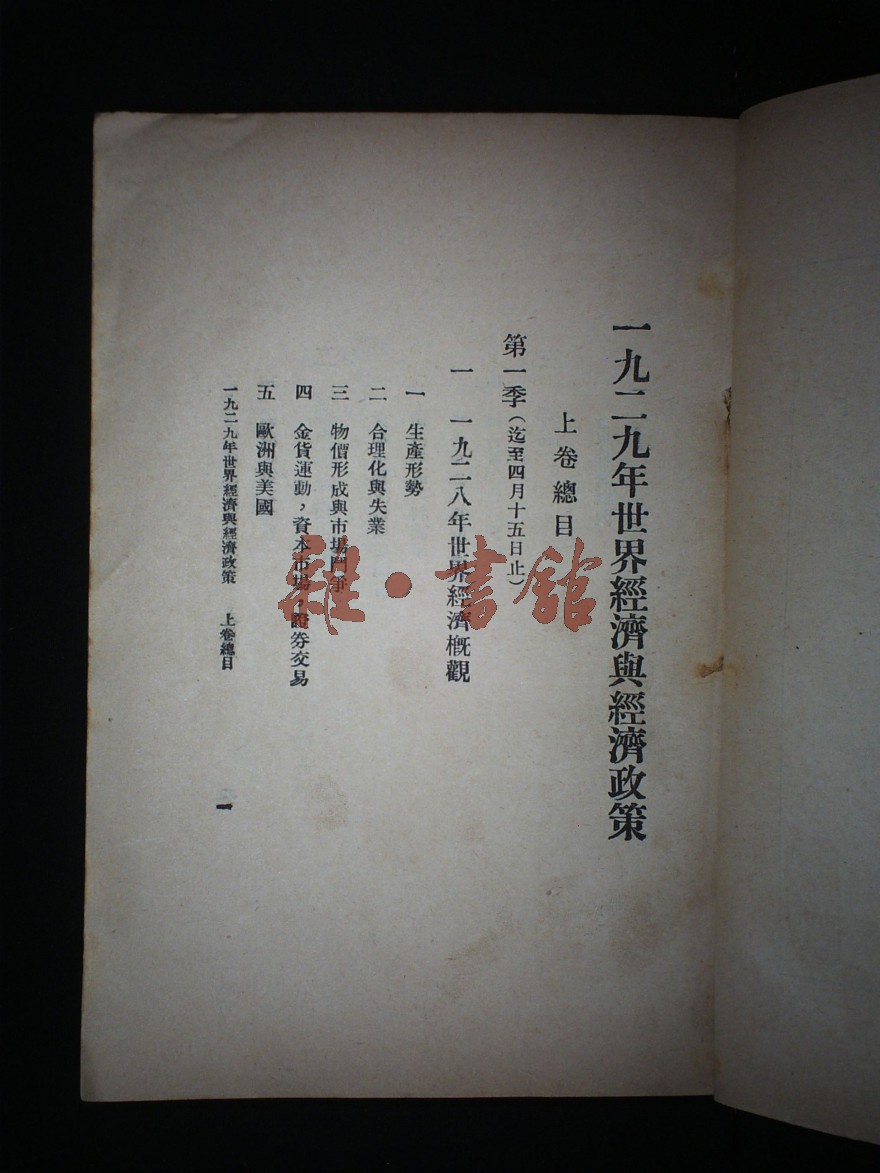 一九二九年世界經濟與經濟政策
上卷總目
第一季（迄至四月十五日止）
一 一九二八年世界經濟概觀
一 生產形勢
二 合理化與失業
三 物價形成與市場鬥爭
四 金貨運動，資本市場，證券交易
五 歐洲與美國
一九二九年世界經濟與經濟政策 上卷總目
一
雜·書館